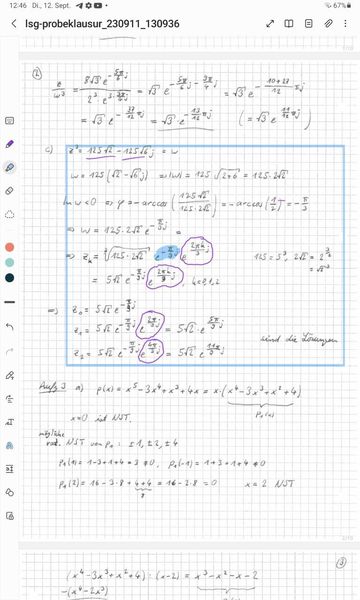 12:46 Di., 12. Sept.
67%
lsg-probeklausur_230911_130936
1/10
②
z/w³ = 8√3 e^(-5π/6 j) / 2³ e^(3·3π/4 j) = √3 e^(-5π/6 j - 9π/4 j) = √3 e^(-(10+27)/12 π j)
= √3 e^(-37/12 π j) = √3 e^(-13/12 π j) (= √3 e^(11/12 π j))
c) z³ = 125√2 - 125√6 j = w
w = 125(√2 - √6 j) ⇒ |w| = 125 √(2+6) = 125·2√2
Im w < 0 ⇒ φ = -arccos(125√2 / 125·2√2) = -arccos(1/2) = -π/3
⇒ w = 125·2√2 e^(-π/3 j) =
⇒ z_k = ³√(125·2√2) e^(-π/9 j) e^(2πk/3 j) 125 = 5³, 2√2 = 2^(3/2)
= 5√2 e^(-π/9 j) e^(2πk/3 j), k=0,1,2 = √2³
⇒ z₀ = 5√2 e^(-π/9 j)
z₁ = 5√2 e^(-π/9 j) e^(2π/3 j) = 5√2 · e^(5π/9 j)
z₂ = 5√2 e^(-π/9 j) e^(4π/3 j) = 5√2 e^(11π/9 j) sind die Lösungen
Aufg 3 a) p(x) = x⁵ - 3x⁴ + x³ + 4x = x·(x⁴ - 3x³ + x² + 4)
p₁(x)
x=0 ist NST.
mögliche
rat. NST von p₁: ±1, ±2, ±4
p₁(1) = 1-3+1+4 = 3 ≠ 0, p₁(-1) = 1+3+1+4 ≠ 0
p₁(2) = 16 - 3·8 + 4+4 = 16 - 2·8 = 0 x = 2 NST
8
2/10
③
(x⁴ - 3x³ + x² + 4) : (x-2) = x³ - x² - x - 2
-(x⁴ - 2x³)